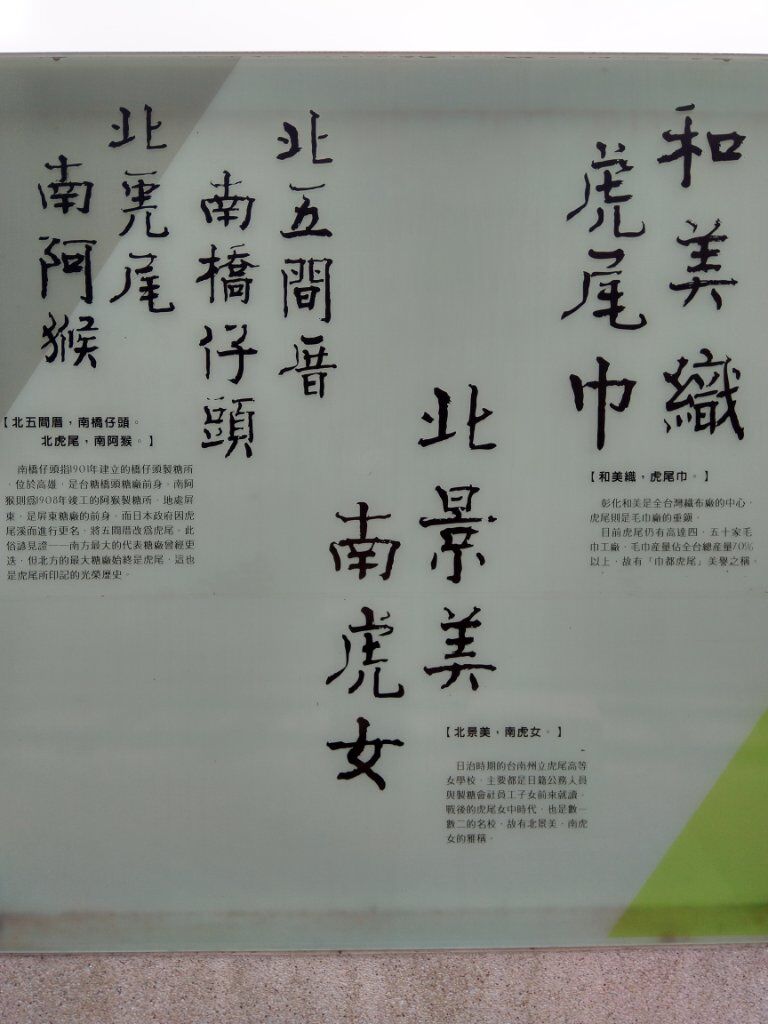 和美織
虎尾巾
【和美織，虎尾巾。】
彰化和美是全台灣織布廠的中心，
虎尾則是毛巾廠的重鎮。
目前虎尾仍有高達四、五十家毛
巾工廠，毛巾產量佔全台總產量70%
以上，故有「巾都虎尾」美譽之稱。
北景美
南虎女
【北景美，南虎女。】
日治時期的台南州立虎尾高等
女學校，主要都是日籍公務人員
與製糖會社員工子女前來就讀，
戰後的虎尾女中時代，也是數一
數二的名校，故有北景美，南虎
女的雅稱。
北五間厝
南橋仔頭
北虎尾
南阿猴
【北五間厝，南橋仔頭。
北虎尾，南阿猴。】
南橋仔頭指1901年建立的橋仔頭製糖所
，位於高雄，是台糖橋頭糖廠前身。南阿
猴則為1908年竣工的阿猴製糖所，地處屏
東，是屏東糖廠的前身。而日本政府因虎
尾溪而進行更名，將五間厝改為虎尾。此
俗諺見證——南方最大的代表糖廠曾經更
迭，但北方的最大糖廠始終是虎尾，這也
是虎尾所印記的光榮歷史。